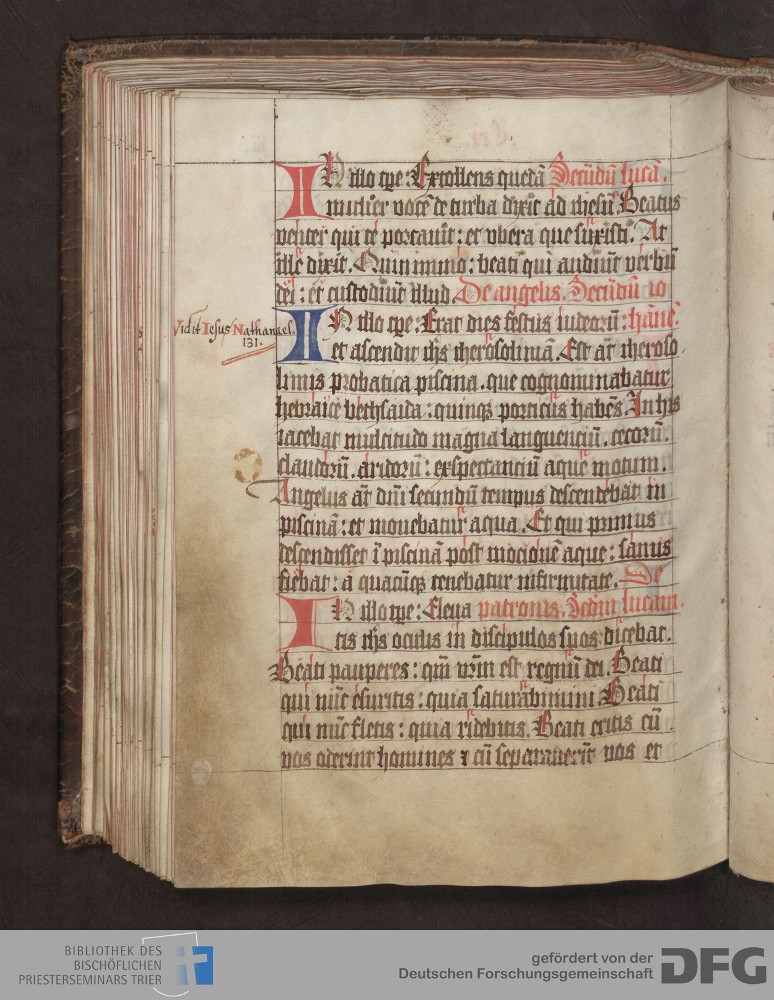 IN illo tpe: Extollens quedā Secūdū lucā.
mulier vocē de turba dixit ad ihesū. Beatus
venter qui te portauit: et vbera que suxisti. At
ille dixit. Quin immo: beati qui audiūt verbū
dei: et custodiūt illud. De angelis. Secūdū io
IN illo tpe: Erat dies festus iudeorū: hānē.
et ascendit ihs iherosolimā. Est aūt iheroso
limis probatica piscina. que cognominabatur
hebraice bethsaida: quinqꝫ porticus habēs. In his
iacebat multitudo magna languenciū. cecorū.
claudorū. aridorū: exspectanciū aque motum.
Angelus aūt dnī secundū tempus descendebat in
piscinā: et mouebatur aqua. Et qui primus
descendisset ī piscinā post mocionē aque: sanus
fiebat: a quacūqꝫ tenebatur infirmitate. De
IN illo tpe: Eleua patronis. Scdm lucam.
tis ihs oculis in discipulos suos dicebat.
Beati pauperes: qm̄ vr̄m est regnū dei. Beati
qui nūc esuritis: quia saturabimini. Beati
qui nūc fletis: quia ridebitis. Beati eritis cū
vos oderint homines ⁊ cū separauerīt vos et
Vidit Iesus Nathanael.
131.
BIBLIOTHEK DES
BISCHÖFLICHEN
PRIESTERSEMINARS TRIER
gefördert von der
Deutschen Forschungsgemeinschaft DFG